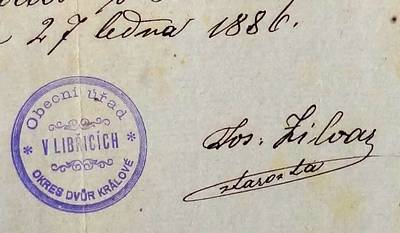 27 ledna 1886.
Obecní úřad
V LIBŘICÍCH
OKRES DVŮR KRÁLOVÉ
Jos. Zilvar
starosta